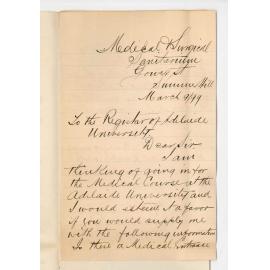 Medical & Surgical
Sanitarium
Summer Hill
March 9/99
To the Registrar of Adelaide
University
Dear Sir
I am
thinking of going in for
the Medical Course at the
Adelaide University and
I would esteem it a favor
if you would supply me
with the following information
Is there a Medical Entrance